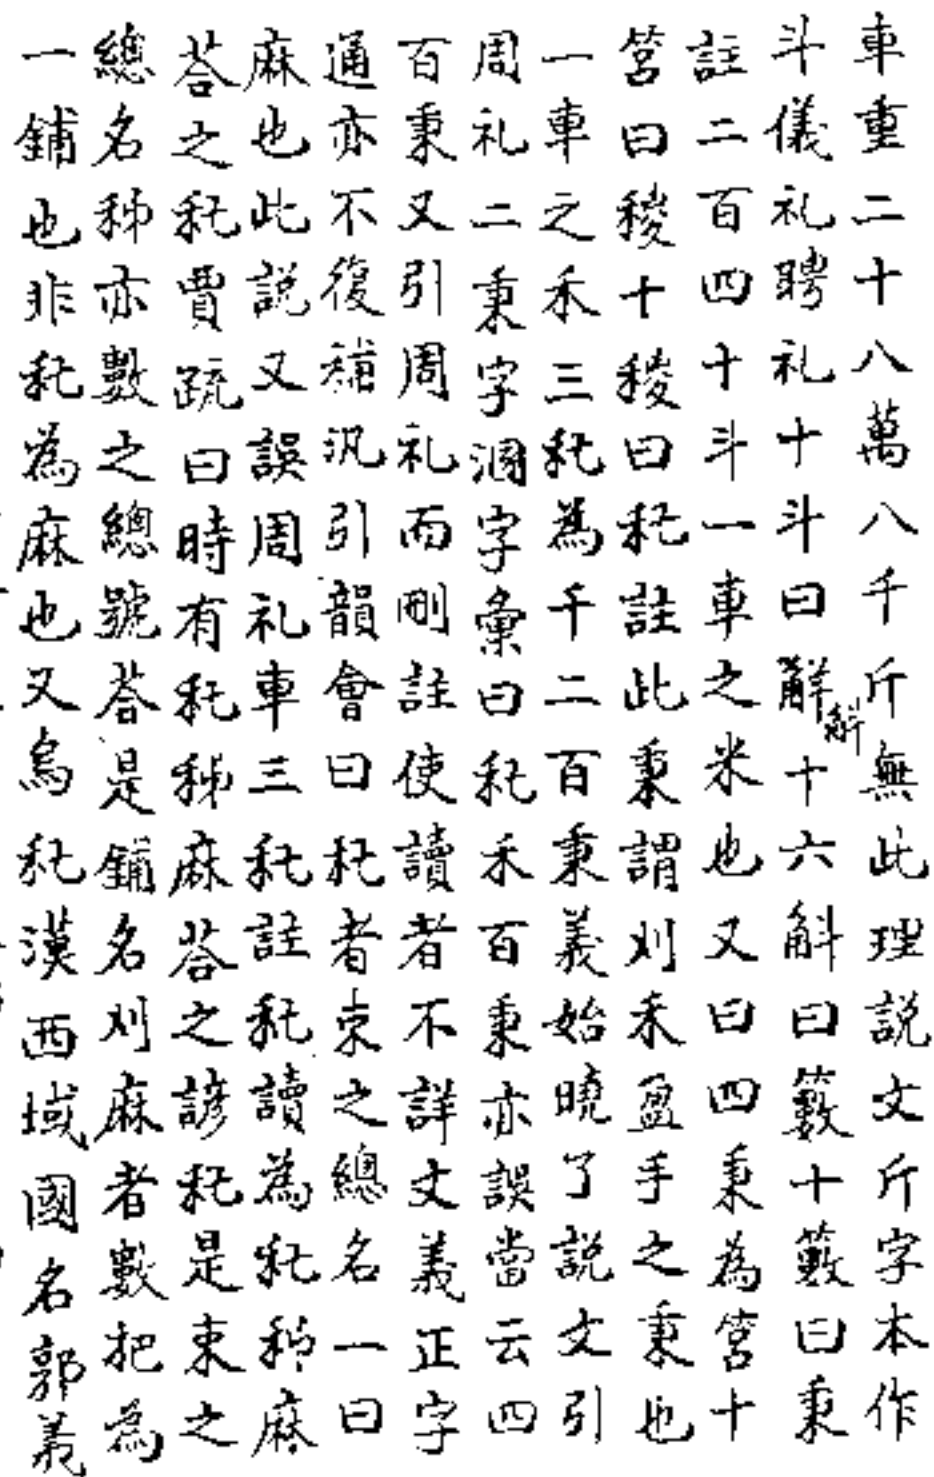 車重二十八萬八千斤無此理説文斤字本作
斗儀礼聘礼十斗曰斛斛十六斛曰籔十籔曰秉
註二百四十斗一車之米也又曰四秉為筥十
筥曰稯十稯曰秅註此秉謂刈禾盈手之秉也
一車之禾三秅為千二百秉義始曉了説文引
周礼二秉字溷字彙曰秅禾百秉亦誤當云四
百秉又引周礼而刪註使讀者不詳文義正字
通亦不復補汎引韻會曰秅者束之總名一曰
麻也此説又誤周礼車三秅註秅讀為秅秭麻
荅之秅賈疏曰時有秅秭麻荅之諺秅是束之
總名秭亦數之總號荅是鋪名刈麻者數把為
一鋪也非秅為麻也又烏秅漢西域國名郭義